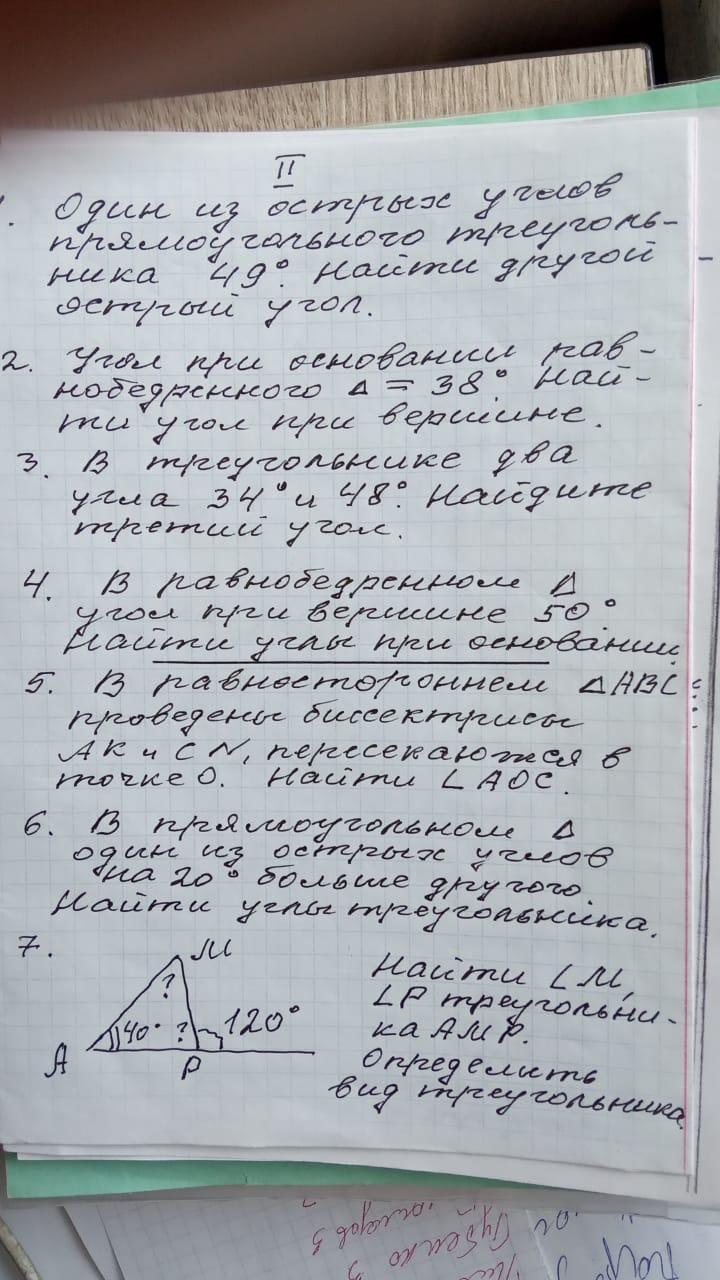 II
1. Один из острых углов
прямоугольного треуголь-
ника 49°. Найти другой
острый угол.
2. Угол при основании рав-
нобедренного Δ = 38°. Най-
ти угол при вершине.
3. В треугольнике два
угла 34° и 48°. Найдите
третий угол.
4. В равнобедренном Δ
угол при вершине 50°
Найти углы при основании.
5. В равностороннем ΔABC
проведены биссектрисы
AK и CN, пересекаются в
точке O. Найти ∠AOC.
6. В прямоугольном Δ
один из острых углов
на 20° больше другого.
Найти углы треугольника.
7.
M
?
40° ? 120°
A
P
Найти ∠M,
∠P треугольни-
ка AMP.
Определить
вид треугольника.